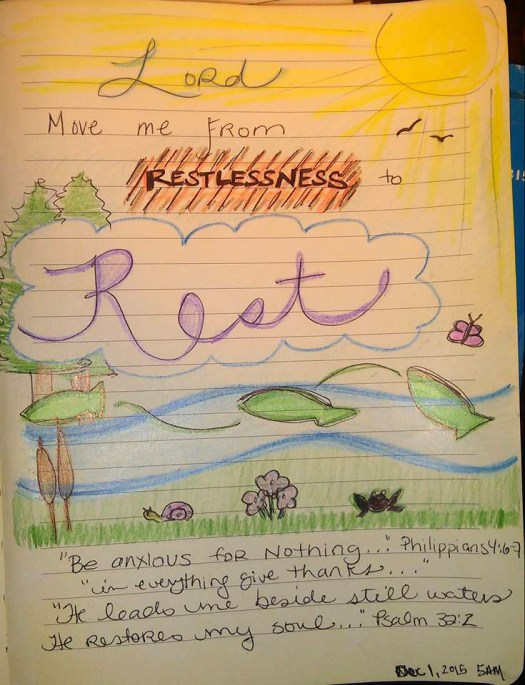 Lord
Move me from
RESTLESSNESS to
Rest
"Be anxious for Nothing..." Philippians 4:6-7
"in everything give thanks..."
"He leads me beside still waters
He restores my soul..." Psalm 32:2
Dec 1, 2015 5AM